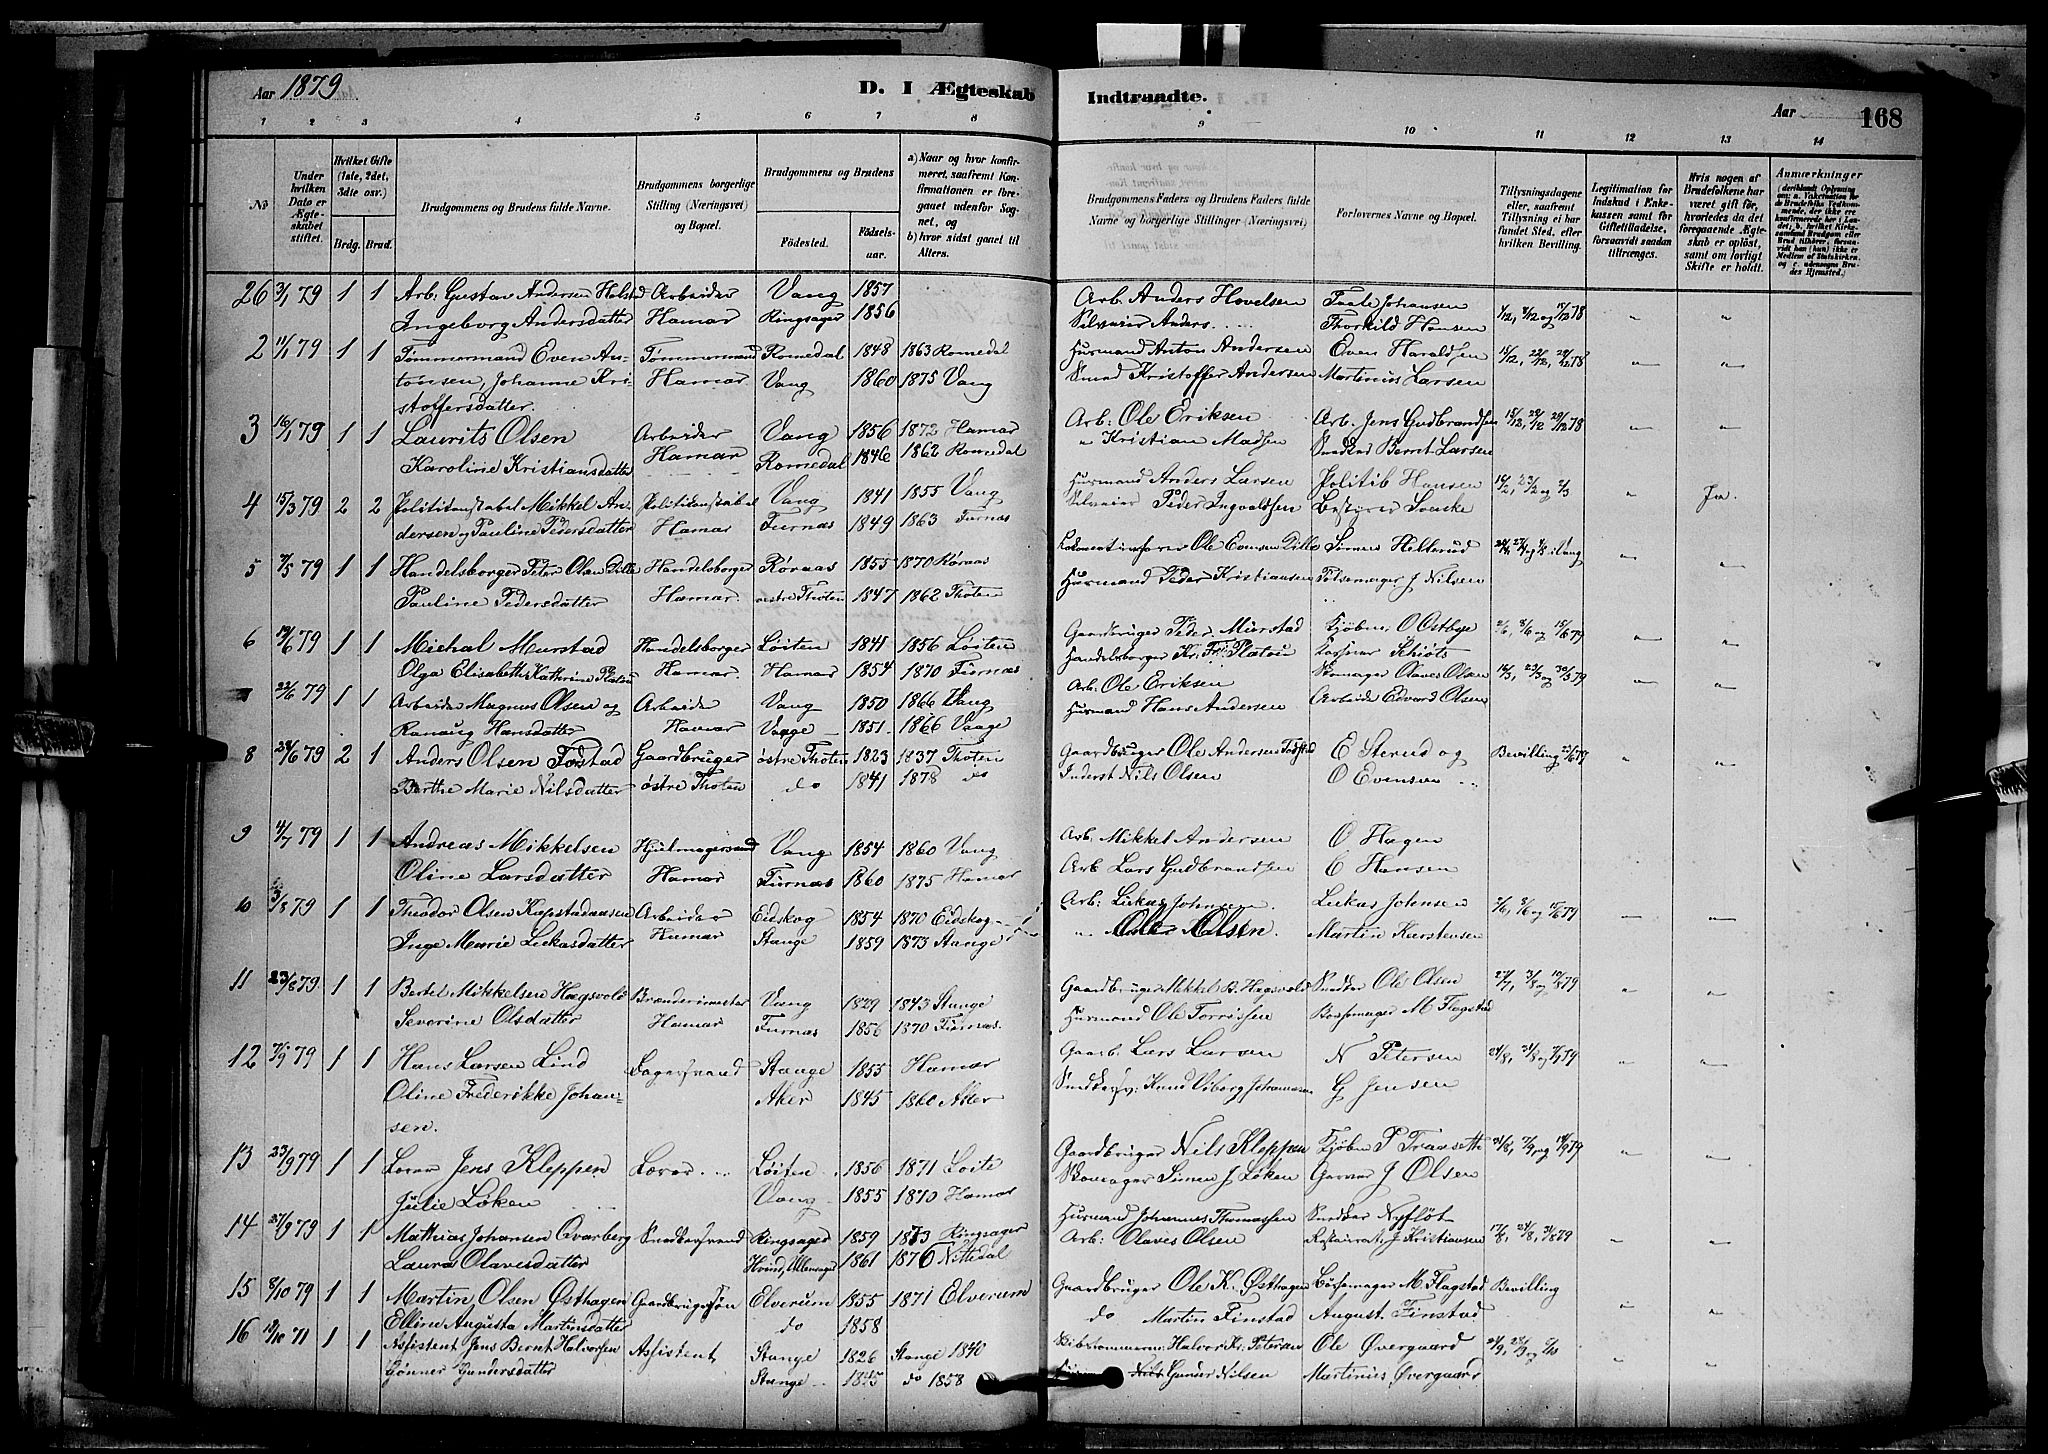 Aar 1879
D. I Ægteskab Indtraadte.
Aar 168
1 2 3 4 5 6 7 8 9 10 11 12 13 14
No
Under hvilken Dato er Ægteskabet stiftet.
Hvilket Gifte (1ste, 2det, 3die osv.)
Brdg. Brud.
Brudgommens og Brudens fulde Navne.
Brudgommens borgerlige Stilling (Næringsvei) og Bopæl.
Brudgommens og Brudens
Fødested. Fødselsaar.
a) Naar og hvor konfirmeret, saafremt Konfirmationen er foregaaet udenfor Sognet, og
b) hvor sidst gaaet til Alters.
Brudgommens Faders og Brudens Faders fulde Navne og borgerlige Stillinger (Næringsvei)
Forlovernes Navne og Bopæl.
Tillysningsdagene eller, saafremt Tillysning ei har fundet Sted, efter hvilken Bevilling.
Legitimation for Indskud i Enkekassen samt for Giftetilladelse, forsaavidt saadan tiltrænges.
Hvis nogen af Brudefolkene har været gift før, hvorledes da det foregaaende Ægteskab er opløst, samt om lovligt Skifte er holdt.
Anmærkninger
26 3/1 79 1 1 Arb. Gustav Andersen Holstad Arbeider Vang 1857 Arb. Anders Hovelsen Paale Johansen 1/12, 8/12 og 15/12 78 " "
Ingeborg Andersdatter Hamar Ringsager 1856 Selveier Anders Thorkild Hansen
2 11/1 79 1 1 Tømmermand Even An- Tømmermand Romedal 1848 1863 Romedal Husmand Anton Andersen Even Haraldsen 15/12, 22/12, 29/12 78 " "
tonsen, Johanne Kri- Hamar Vang 1860 1875 Vang Smed Kristoffer Andersen Martinus Larsen
stoffersdatter.
3 16/1 79 1 1 Laurits Olsen Arbeider Vang 1856 1872 Hamar Arb: Ole Eriksen Arb. Jens Gudbrandsen 15/12, 22/12 29/12 78 " "
Karoline Kristiansdatter Hamar Romedal 1846 1862 Romedal " Kristian Madsen Snedker Bernt Larsen
4 15/3 79 2 2 Politikonstabel Mikkel An- Politikonstabel Vang 1841 1855 Vang Husmand Anders Larsen Politib Hansen 16/2, 23/2 og 2/3 " Ja.
dersen og Pauline Pedersdatter Hamar Furnæs 1849 1863 Furnæs Selveier Peder Ingvaldsen Bestyrer Svenske
5 7/5 79 1 1 Handelsborger Peter Olsen Dille Handelsborger Røraas 1855 1870 Røraas Lokomotivfører Ole Evensen Dille Simen Hellerud " "
Pauline Pedersdatter Hamar. østre Thoten 1847 1862 Thoten Husmand Peder Kristiansen Pølsemager J Nilsen
6 19/6 79 1 1 Michal Murstad Handelsborger Løiten 1841 1856 Løiten Gaardbruger Peder Murstad Kjøbm. O Ostbye 2/6, 8/6 og 15/6 79 " "
Olga Elisabeth Katherine Platou Hamar Hamar 1854 1870 Furnæs Handelsborger Kr. Fr. Platou Kasserer Schiøtz
7 22/6 79 1 1 Arbeider Magnus Olsen og Arbeide Vang 1850 1866 Vang Arb: Ole Eriksen Skomager Olaves Olsen 16/3, 23/3 og 30/3 79 " "
Ranaug Hansdatter Hamar Vaage 1851 1866 Vaage Husmand Hans Andersen Arbeide Edvard Olsen
8 24/6 79 2 1 Anders Olsen Fodstad Gaardbruger østre Thoten 1823 1837 Thoten Gaardbruger Ole Andersen Fodstad E Sterud og Bevilling 21/6 79 " "
Berthe Marie Nilsdatter østre Thoten do 1841 1878 do Inderst Nils Olsen O Evensen
9 4/7 79 1 1 Andreas Mikkelsen Hjulmagersvend Vang 1854 1860 Vang Arb: Mikkel Andersen O Hagen
Oline Larsdatter Hamar Furnæs 1860 1875 Hamar Arb Lars Gudbrandsen C Hansen
10 3/8 79 1 1 Theodor Olsen Arbeider Eidskog 1854 1870 Eidskog Arb: Lukas Johensen Lukas Johensen 2/6, 8/6 og 15/6 79 " "
Inge Marie Lukasdatter Hamar Stange 1859 1873 Stange " Ole Olsen. Martin Karstensen
11 23/8 79 1 1 Bertel Mikkelsen Hægsvold Brænderimester Vang 1829 1843 Stange Gaardbruger Mikkel B. Hegsvold Snedker Ole Olsen 27/7, 3/8 og 10/8 79 " "
Severine Olsdatter Hamar Furnæs 1856 1870 Furnæs. Husmand Ole Torrissen Børsemager M Flagstad
12 7/9 79 1 1 Hans Larsen Lind Bagersvend Stange 1855 Hamar Gaarb. Lars Larsen N Petersen 24/8, 31/8 og 7/9 79 " "
Oline Frederikke Johan- Aker 1845 1860 Aker Snedkersv: Knud Viborg Johannesen G Jensen
sen.
13 23/9 79 1 1 Lærer Jens Kleppen Lærer Løiten 1856 1871 Løite Gaardbruger Nils Kleppen Kjøbm P Traasette 31/8, 7/9 og 14/9 79 " "
Julie Løken Vang 1855 1870 Hamar Skomager Simen J Løken Garver J Olsen
14 27/9 79 1 1 Mathias Johansen Qvarberg Snedkersvend Ringsager 1859 1873 Ringsager Husmand Johannes Thomassen Snedker Nyfløt 17/8, 24/8, 31/8 79 " "
Laura Olavesdatter Ullensager 1861 1876 Nittedal Arb: Olaves Olsen Restaurat. J Kristiansen
15 8/10 79 1 1 Martin Olsen Østhagen Gaardbrugersøn Elverum 1855 1871 Elverum Gaardbruger Ole K. Østhagen Børsemager M. Flagstad Bevilling " "
Elline Augusta Martinsdatter do 1858 do Martin Finstad August Finstad
16 12/10 71 1 1 Assistent Jens Bernt Halvorsen Assistent Stange 1826 Stange 1840 Halvor Kr. Petersen Ole Øvergaard 21/9, 28/9 og 5/10 " "
Gønner Gundersdatter Stange 1845 do 1858 Gunder Nilsen Martinius Øvergaard